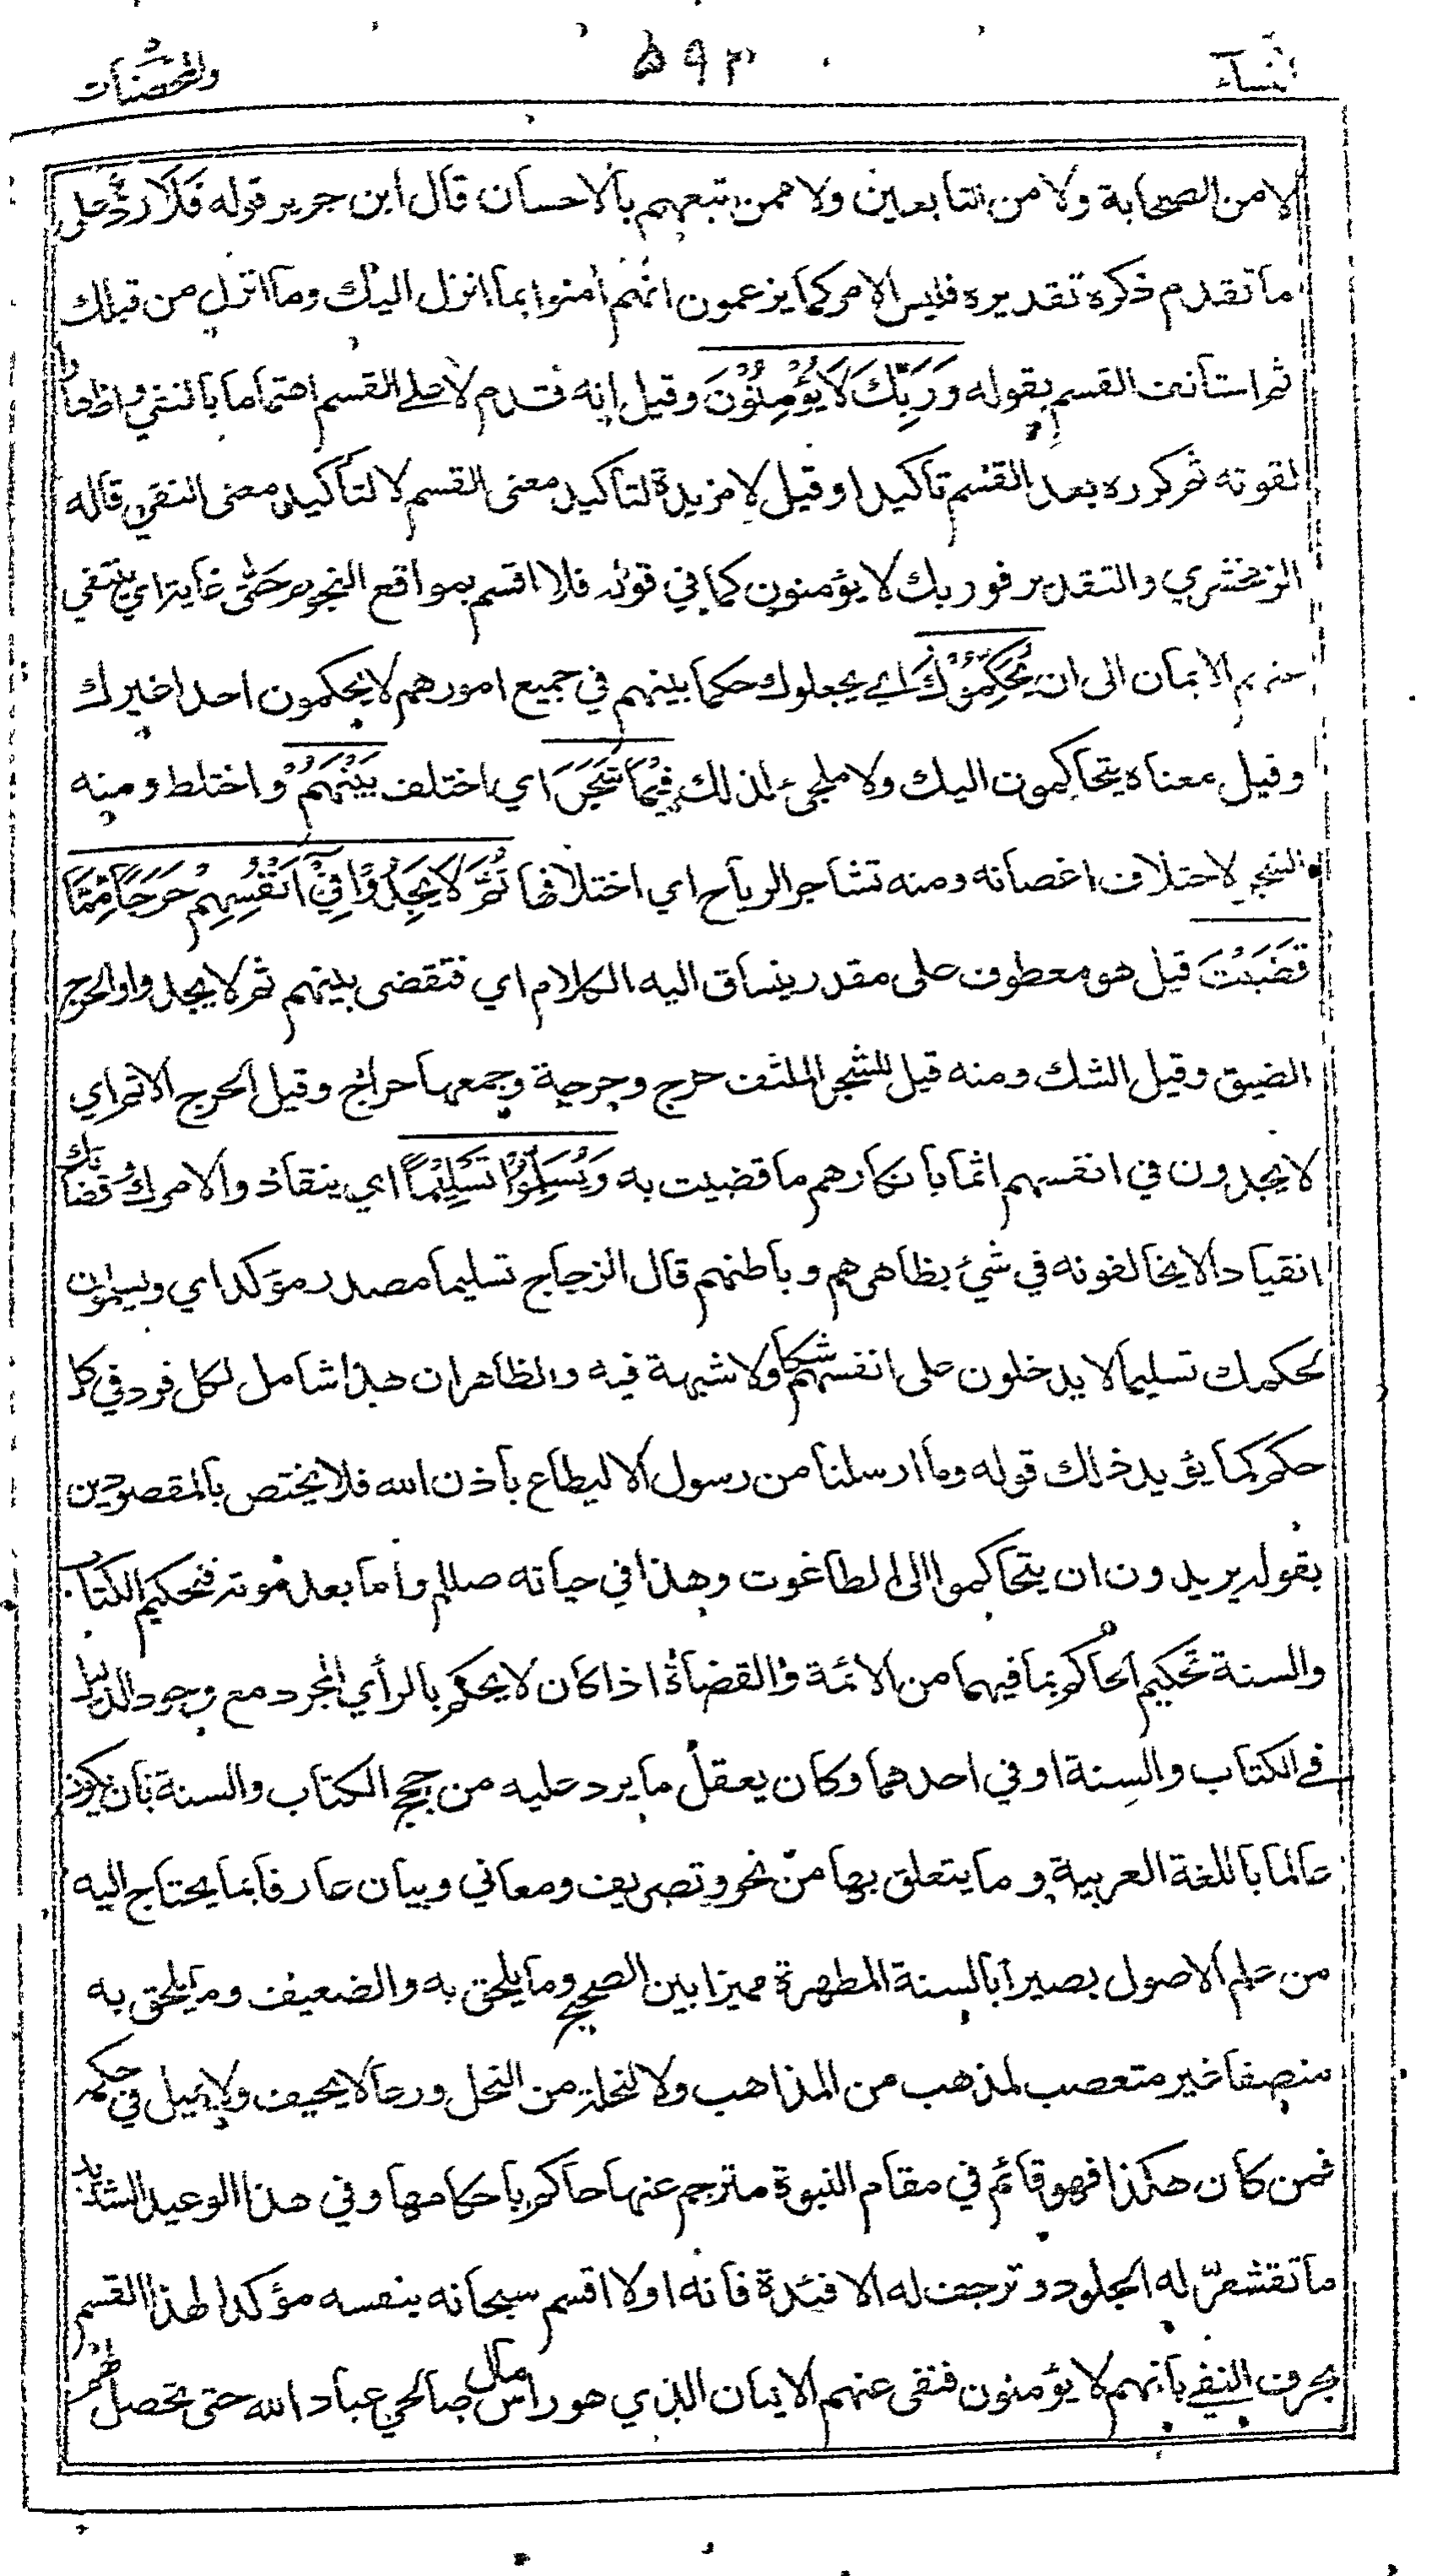 النساء ٥٩٣ والمحصنات
لا من الصحابة ولا من التابعين ولا ممن تبعهم بالاحسان قال ابن جرير قوله فَلَا رد على
ما تقدم ذكره تقديره فليس الامر كما يزعمون انهم امنوا بما انزل اليك وما انزل من قبلك
ثم استأنف القسم بقوله وَرَبِّكَ لَا يُؤْمِنُوْنَ وقيل انه قدم لا على القسم اهتماما بالنفي واظهارا
لقوته ثم كرره بعد القسم تأكيدا وقيل لا مزيدة لتأكيد معنى القسم لا لتأكيد معنى النفي قاله
الزمخشري والتقدير فوربك لا يؤمنون كما في قوله فلا اقسم بمواقع النجوم حَتّٰى غاية اي ينتفي
عنهم الايمان الى ان يُحَكِّمُوْكَ اي يجعلوك حكما بينهم في جميع امورهم لا يحكمون احدا غيرك
وقيل معناه يتحاكمون اليك ولا ملجئ لذلك فِيْمَا شَجَرَ اي اختلف بَيْنَهُمْ واختلط ومنه
الشجر لاختلاف اغصانه ومنه تشاجر الرياح اي اختلافها ثُمَّ لَا يَجِدُوْا فِيْٓ اَنْفُسِهِمْ حَرَجًا مِّمَّا
قَضَيْتَ قيل هو معطوف على مقدر ينساق اليه الكلام اي فتقضى بينهم ثم لا يجدوا والحرج
الضيق وقيل الشك ومنه قيل للشجر الملتف حرج وحرجة وجمعها حراج وقيل الحرج الاثم اي
لا يجدون في انفسهم اثما بانكارهم ما قضيت به وَيُسَلِّمُوْا تَسْلِيْمًا اي ينقادوا لامرك وقضائك
انقيادا لا يخالفونه في شيء بظاهرهم وباطنهم قال الزجاج تسليما مصدر مؤكد اي ويسلمون
لحكمك تسليما لا يدخلون على انفسهم شكا ولا شبهة فيه والظاهر ان هذا شامل لكل فرد في كل
حكم كما يؤيد ذلك قوله وما ارسلنا من رسول الا ليطاع باذن الله فلا يختص بالمقصودين
بقوله يريدون ان يتحاكموا الى الطاغوت وهذا في حياته صللم واما بعد موته فتحكيم الكتاب
والسنة تحكيم الحاكم بما فيهما من الائمة والقضاة اذا كان لا يحكم بالرأي المجرد مع وجود الدليل
في الكتاب والسنة او في احدهما وكان يعقل ما يرد عليه من حجج الكتاب والسنة بان يكون
عالما باللغة العربية وما يتعلق بها من نحو وتصريف ومعاني وبيان عارفا بما يحتاج اليه
من علم الاصول بصيرا بالسنة المطهرة مميزا بين الصحيح وما يلحق به والضعيف وما يلحق به
منصفا غير متعصب لمذهب من المذاهب ولا لنحلة من النحل ورعا لا يحيف ولا يميل في حكمه
فمن كان هكذا فهو قائم في مقام النبوة مترجم عنها حاكم باحكامها وفي هذا الوعيد الشديد
ما تقشعرّ له الجلود وترجف له الافئدة فانه اولا اقسم سبحانه بنفسه مؤكدا لهذا القسم
بحرف النفي بانهم لا يؤمنون فنفى عنهم الايمان الذي هو رأس مال صالحي عباد الله حتى تحصل لهم